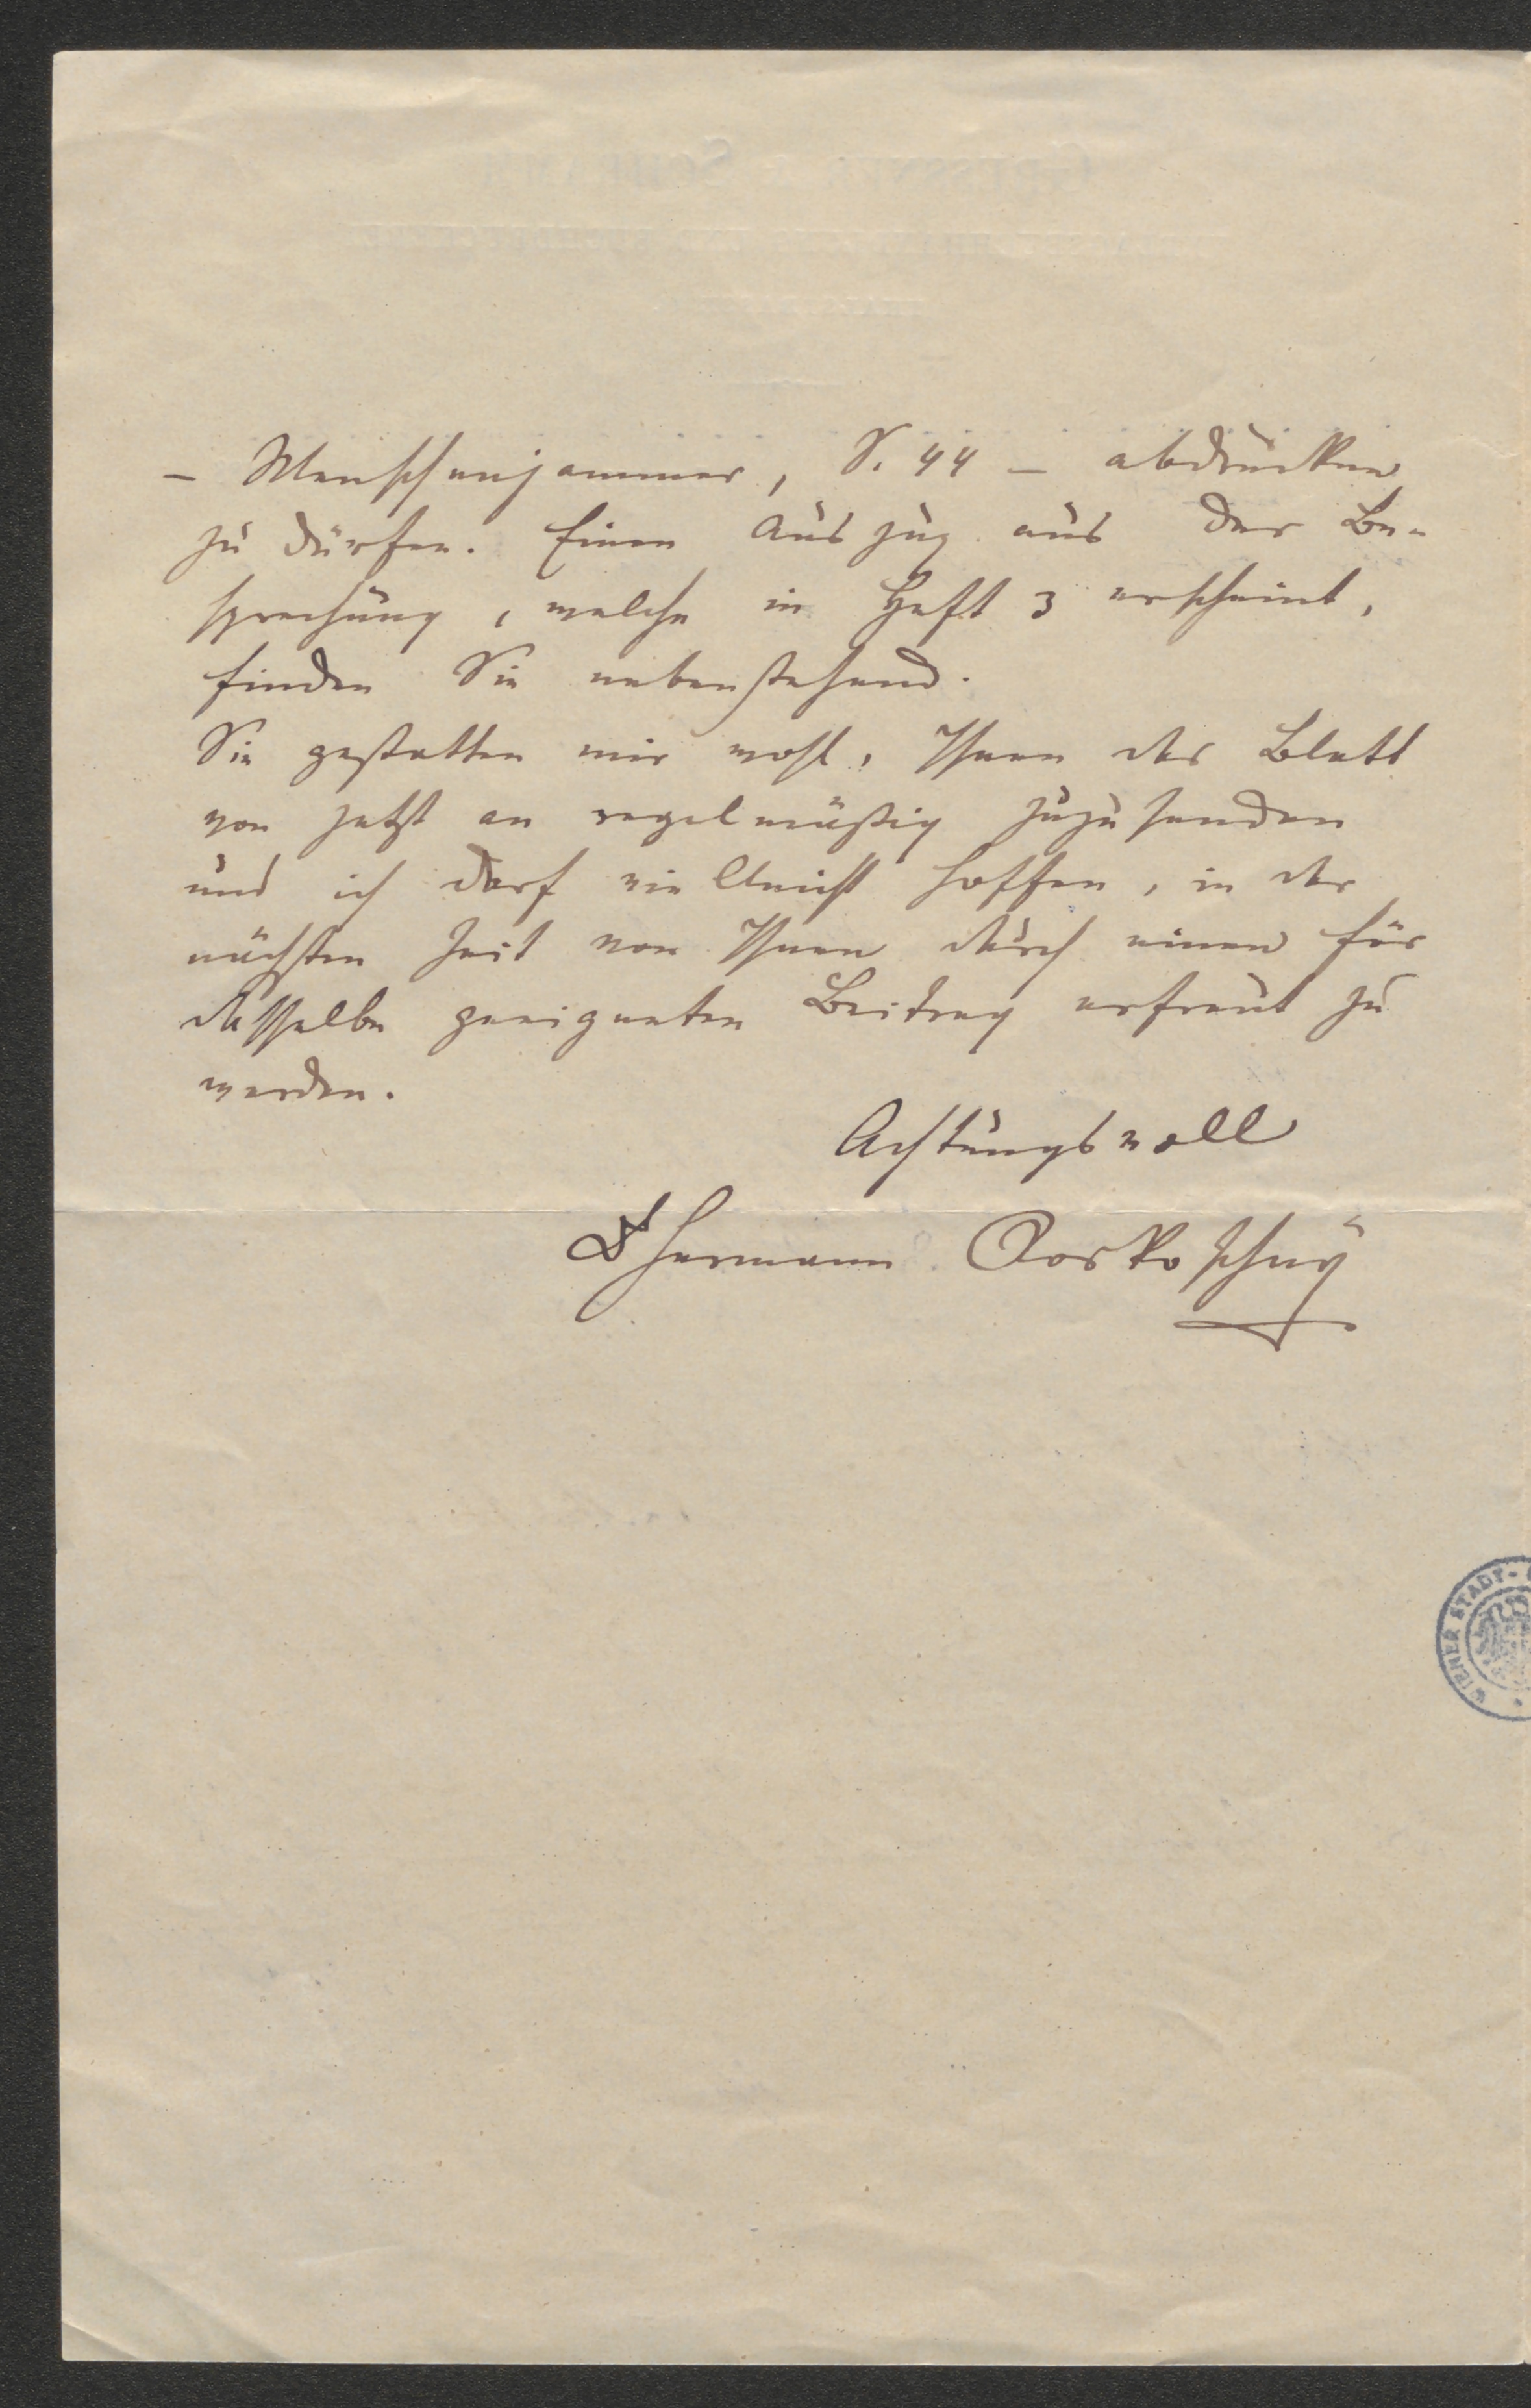 – Menschenjammer, S. 44 – abdrucken
zu dürfen. Einen Auszug aus der Be-
sprechung, welche in Heft 3 erscheint,
finden Sie nebenstehend.
Sie gestatten mir wohl, Ihnen das Blatt
von jetzt an regelmäßig zuzusenden
und ich darf vielleicht hoffen, in der
nächsten Zeit von Ihnen durch einen für
dasselbe geeigneten Beitrag erfreut zu
werden.
Achtungsvoll
Dr Hermann Roskoschny
WIENER STADT-